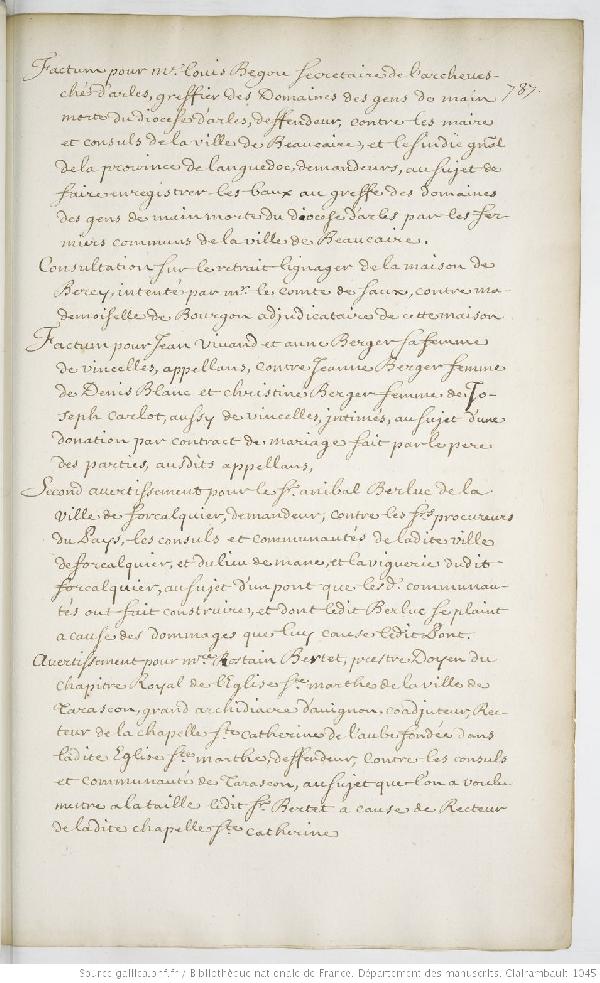 Factum pour mr. Louis Begou secretaire de larcheves-
ché d'arles, greffier des Domaines des gens de main
787.
morte du diocese d'arles, deffendeur, contre les maire
et consuls de la ville de Beaucaire, et le sindic gnâl
de la province de languedoc, demandeurs, au sujet de
faire enregistrer les baux au greffe des domaines
des gens de main morte du diocese d'arles par les fer-
miers communs de la ville de Beaucaire.
Consultation sur le retrait lignager de la maison de
Bercy, intenté par mr. le Comte de saux, contre ma-
demoiselle de Bourgon adjudicataire de cette maison
Factum pour Jean Vivand et anne Berger sa femme
de vincelles, appellans, contre Jeanne Berger femme
de Denis Blanc et christine Berger femme de Jo-
seph Carlot, aussy de vincelles, intimés, au sujet d'une
donation par contract de mariage fait par le pere
des parties, ausdits appellans,
Second avertissement pour le sr. anibal Berluc de la
ville de forcalquier, demandeur, contre les srs. procureurs
du Pays, les consuls et communautés de ladite ville
de forcalquier, et du lieu de mane, et la viguerie dudit
forcalquier, au sujet d'un pont que lesd. communau-
tés ont fait construire, et dont ledit Berluc se plaint
a cause des dommages que luy cause ledit Pont.
Avertissement pour mre. Rostain Bertet, prestre Doyen du
chapitre Royal de l'Eglise ste. marthe de la ville de
Tarascon, grand archidiacre d'avignon, coadjuteur, Rec-
teur de la chapelle ste. Catherine de l'aube fondée dans
ladite Eglise ste. marthe, deffendeur, Contre les consuls
et communauté de Tarascon, au sujet que l'on a voulu
mettre a la taille ledit sr. Bertet a cause de Recteur
de ladite chapelle ste. Catherine
Source gallica.bnf.fr / Bibliothèque nationale de France. Département des manuscrits. Clairambault 1045